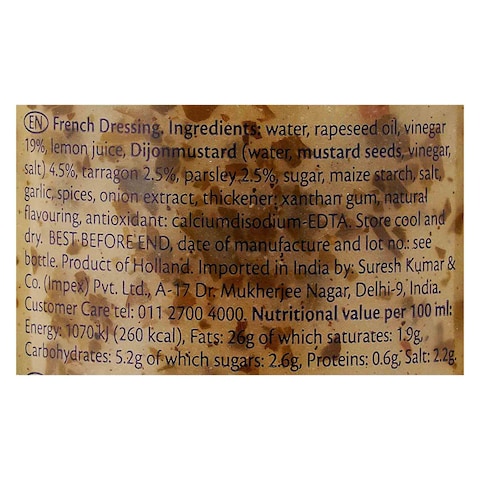 EN French Dressing, Ingredients: water, rapeseed oil, vinegar
19%, lemon juice, Dijonmustard (water, mustard seeds, vinegar,
salt) 4.5%, tarragon 2.5%, parsley 2.5%, sugar, maize starch, salt,
garlic, spices, onion extract, thickener: xanthan gum, natural
flavouring, antioxidant: calciumdisodium-EDTA. Store cool and
dry. BEST BEFORE END, date of manufacture and lot no.: see
bottle. Product of Holland. Imported in India by: Suresh Kumar &
Co. (Impex) Pvt. Ltd., A-17 Dr. Mukherjee Nagar, Delhi-9, India.
Customer Care tel: 011 2700 4000. Nutritional value per 100 ml:
Energy: 1070 kJ (260 kcal), Fats: 26g of which saturates: 1.9g,
Carbohydrates: 5.2g of which sugars: 2.6g, Proteins: 0.6g, Salt: 2.2g.